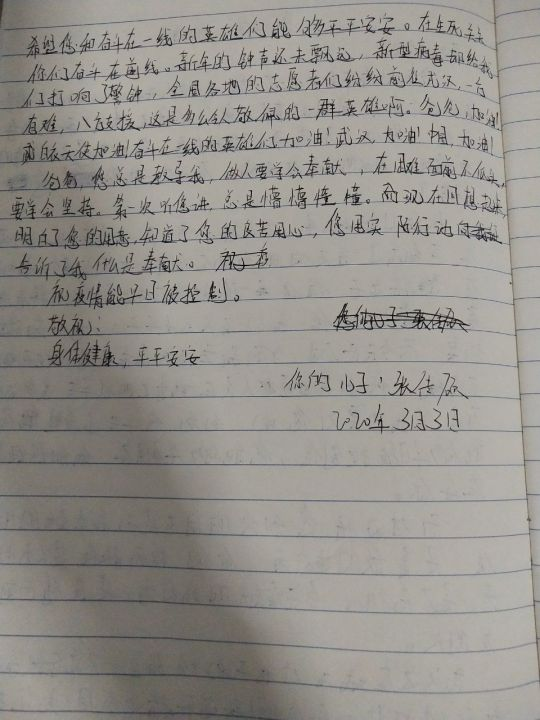 希望您和奋斗在一线的英雄们能够平平安安。在生死关头
你们奋斗在前线。新年的钟声还未飘远，新型病毒却给我
们打响了警钟，全国各地的志愿者们纷纷前往武汉，一方
有难，八方支援，这是多么令人敬佩的一群英雄啊。爸爸，加油！
白衣天使加油！奋斗在一线的英雄们加油！武汉，加油！中国，加油！
爸爸，您总是教导我，做人要学会奉献，在困难面前不低头，
要学会坚持。第一次听您讲，总是懵懵懂懂。而现在回想起来，
明白了您的用意，知道了您的良苦用心，您用实际行动
告诉了我什么是奉献。
祝疫情能早日被控制。
敬祝：
身体健康，平平安安
你的儿子：张
2020年3月3日